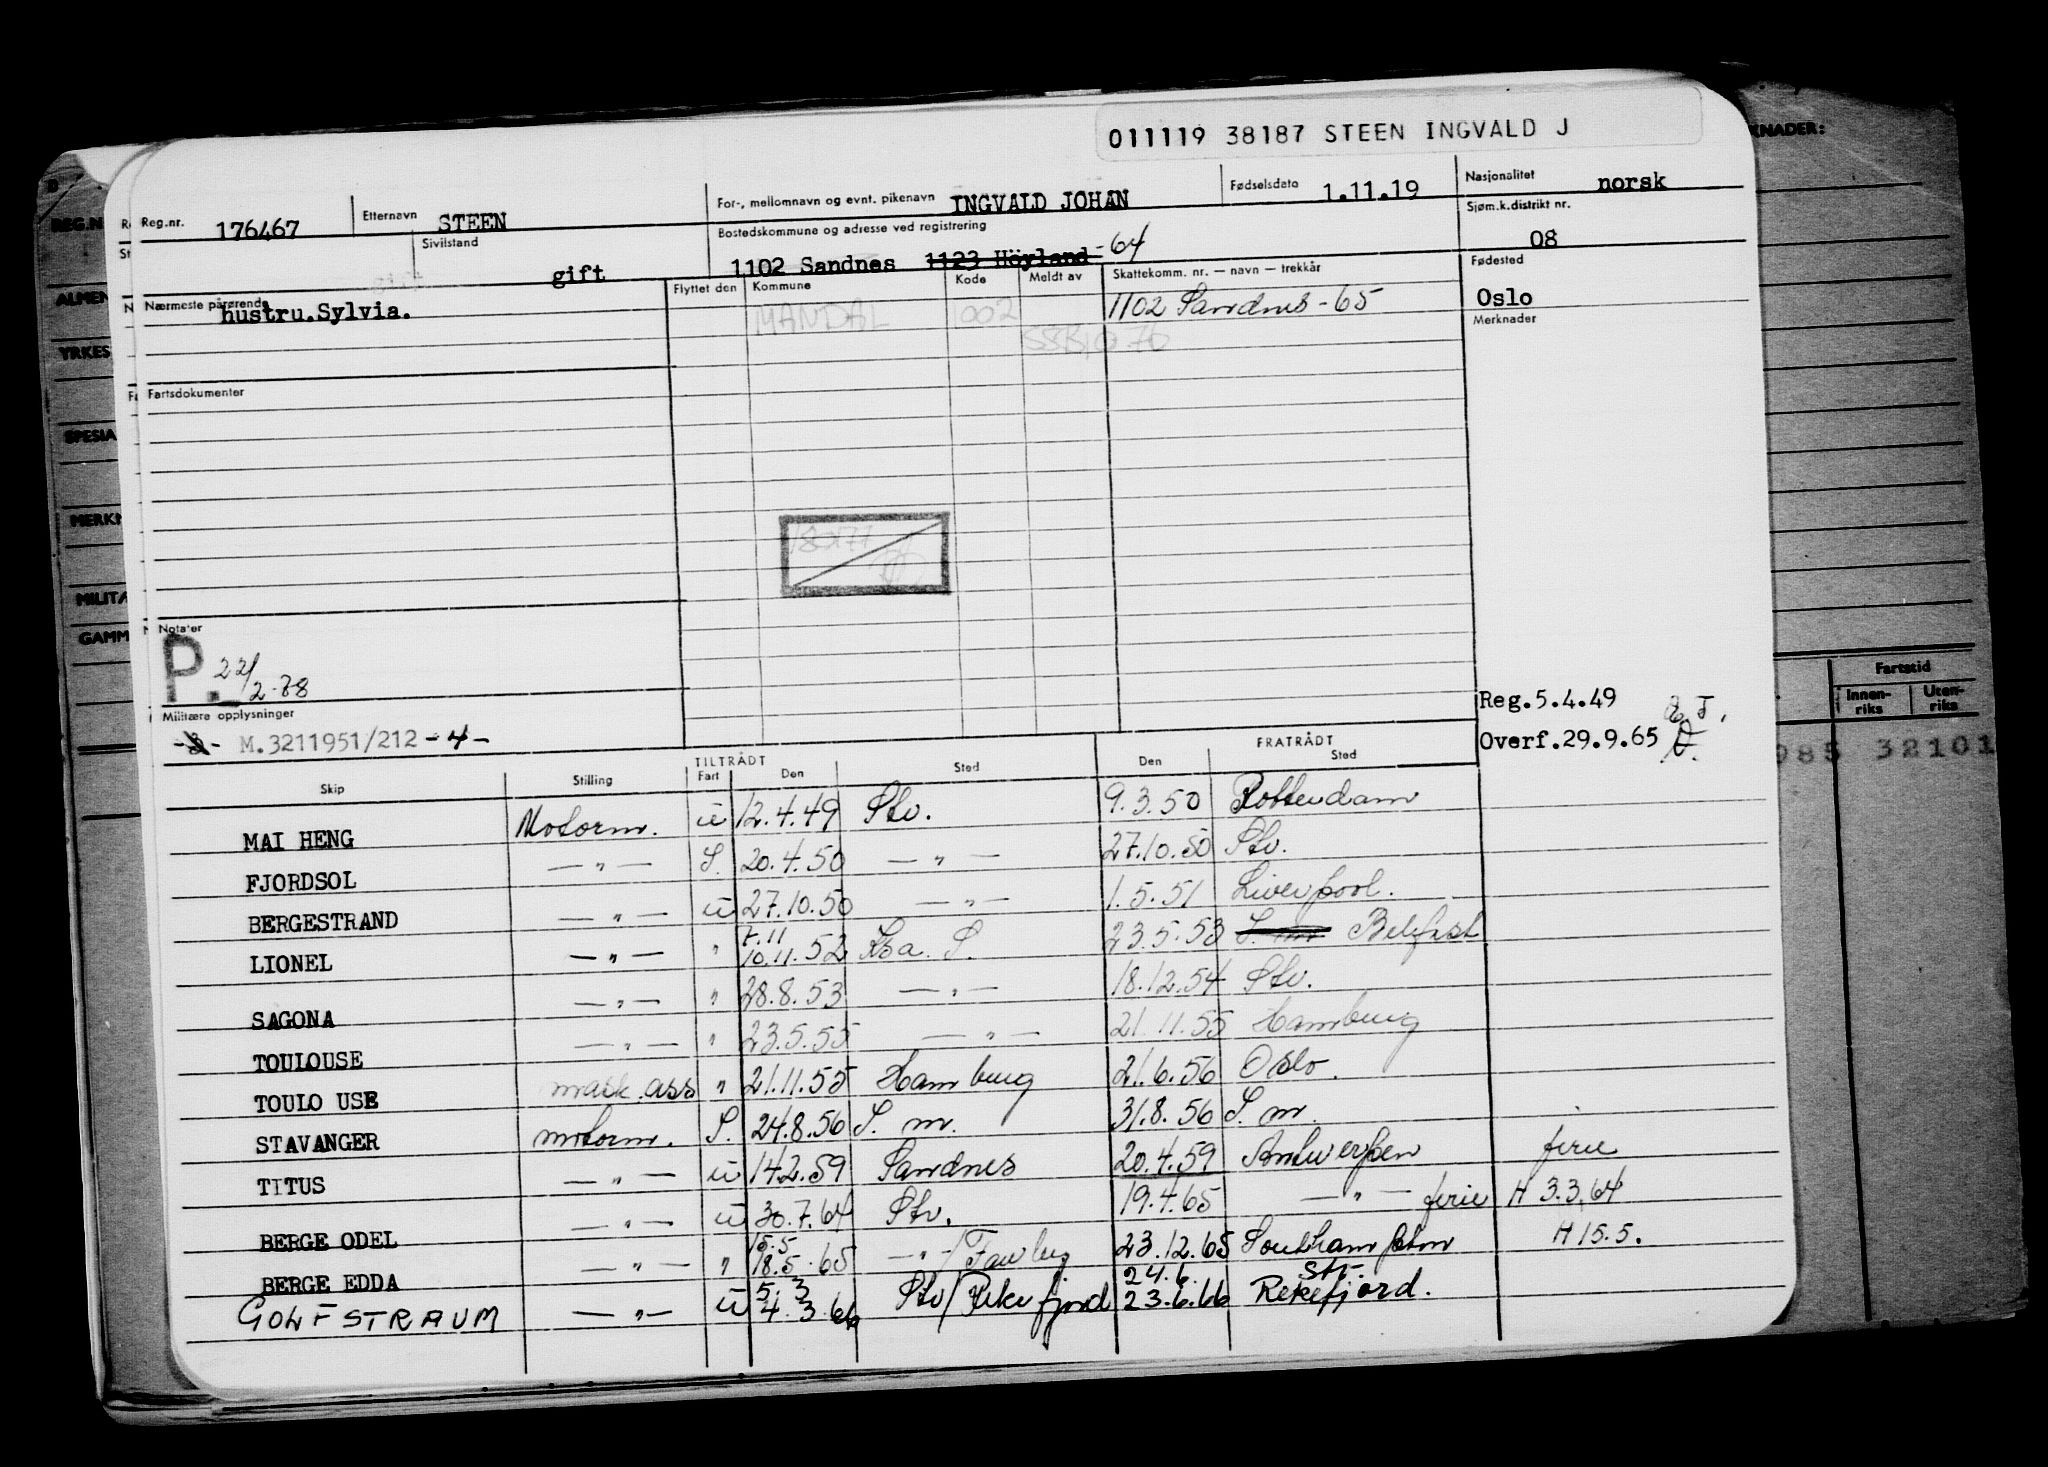 011119 38187 STEEN INGVALD J
KNADER:
Reg.nr. 176467 Etternavn STEEN For-, mellomnavn og evnt. pikenavn INGVALD JOHAN Fødselsdato 1.11.19 Nasjonalitet norsk
Sivilstand gift Bostedskommune og adresse ved registrering 1102 Sandnes 1123 Höyland -64 Sjøm.k.distrikt nr. 08
Nærmeste pårørende hustru.Sylvia. Flyttet den Kommune Kode Meldt av Skattekomm. nr. — navn — trekkår Fødested Oslo
MANDAL 1002 1102 Sandnes - 65 Merknader
Fartsdokumenter
Notater
P. 22/2-78
Militære opplysninger
M.3211951/212 -4-
Reg.5.4.49
Overf.29.9.65
TILTRÅDT FRATRÅDT
Skip Stilling Fart Den Sted Den Sted
MAI HENG Motorm. u 12.4.49 Stv. 9.3.50 Rotterdam
FJORDSOL — " — S. 20.4.50 — " — 27.10.50 Stv.
BERGESTRAND — " — u 27.10.50 — " — 1.5.51 Liverpool.
LIONEL — " — " 7.11 10.11.52 23.5.53 Belfast
SAGONA — " — " 28.8.53 — " — 18.12.54 Stv.
TOULOUSE — " — " 23.5.55 — " — 21.11.55 Hamburg
TOULO USE mask.ass " 21.11.55 Hamburg 21.6.56 Oslo.
STAVANGER motorm. S. 24.8.56 S. m. 31.8.56 S. m.
TITUS — " — u 14.2.59 Sandnes 20.4.59 Antwerpen ferie
BERGE ODEL — " — u 30.7.64 Stv. 19.4.65 — " — ferie H 3.3.64
BERGE EDDA — " — " 15.5 18.5.65 — " — / Fawley 23.12.65 Southampton H 15.5.
GOLFSTRAUM — " — u 5.3 4.3.66 Stv/Rekefjord 24.6. 23.6.66 Stv. Rekefjord.
REG.N
ALMEN
YRKES
SPESIA
MERKN
MILITÆ
GAMM
Fartstid
Innen-riks Uten-riks
985 32101